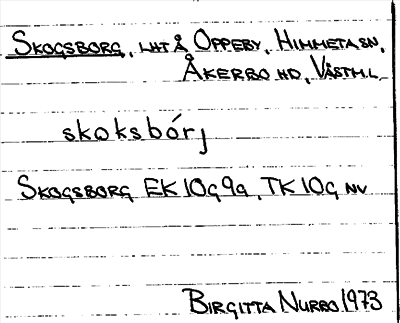 SKOGSBORG, LHT Å OPPEBY, HIMMETA SN,
ÅKERBO HD, VÄSTM.L.
skoksbórj
SKOGSBORG EK 10G9a, TK 10G NV
BIRGITTA NURBO 1973